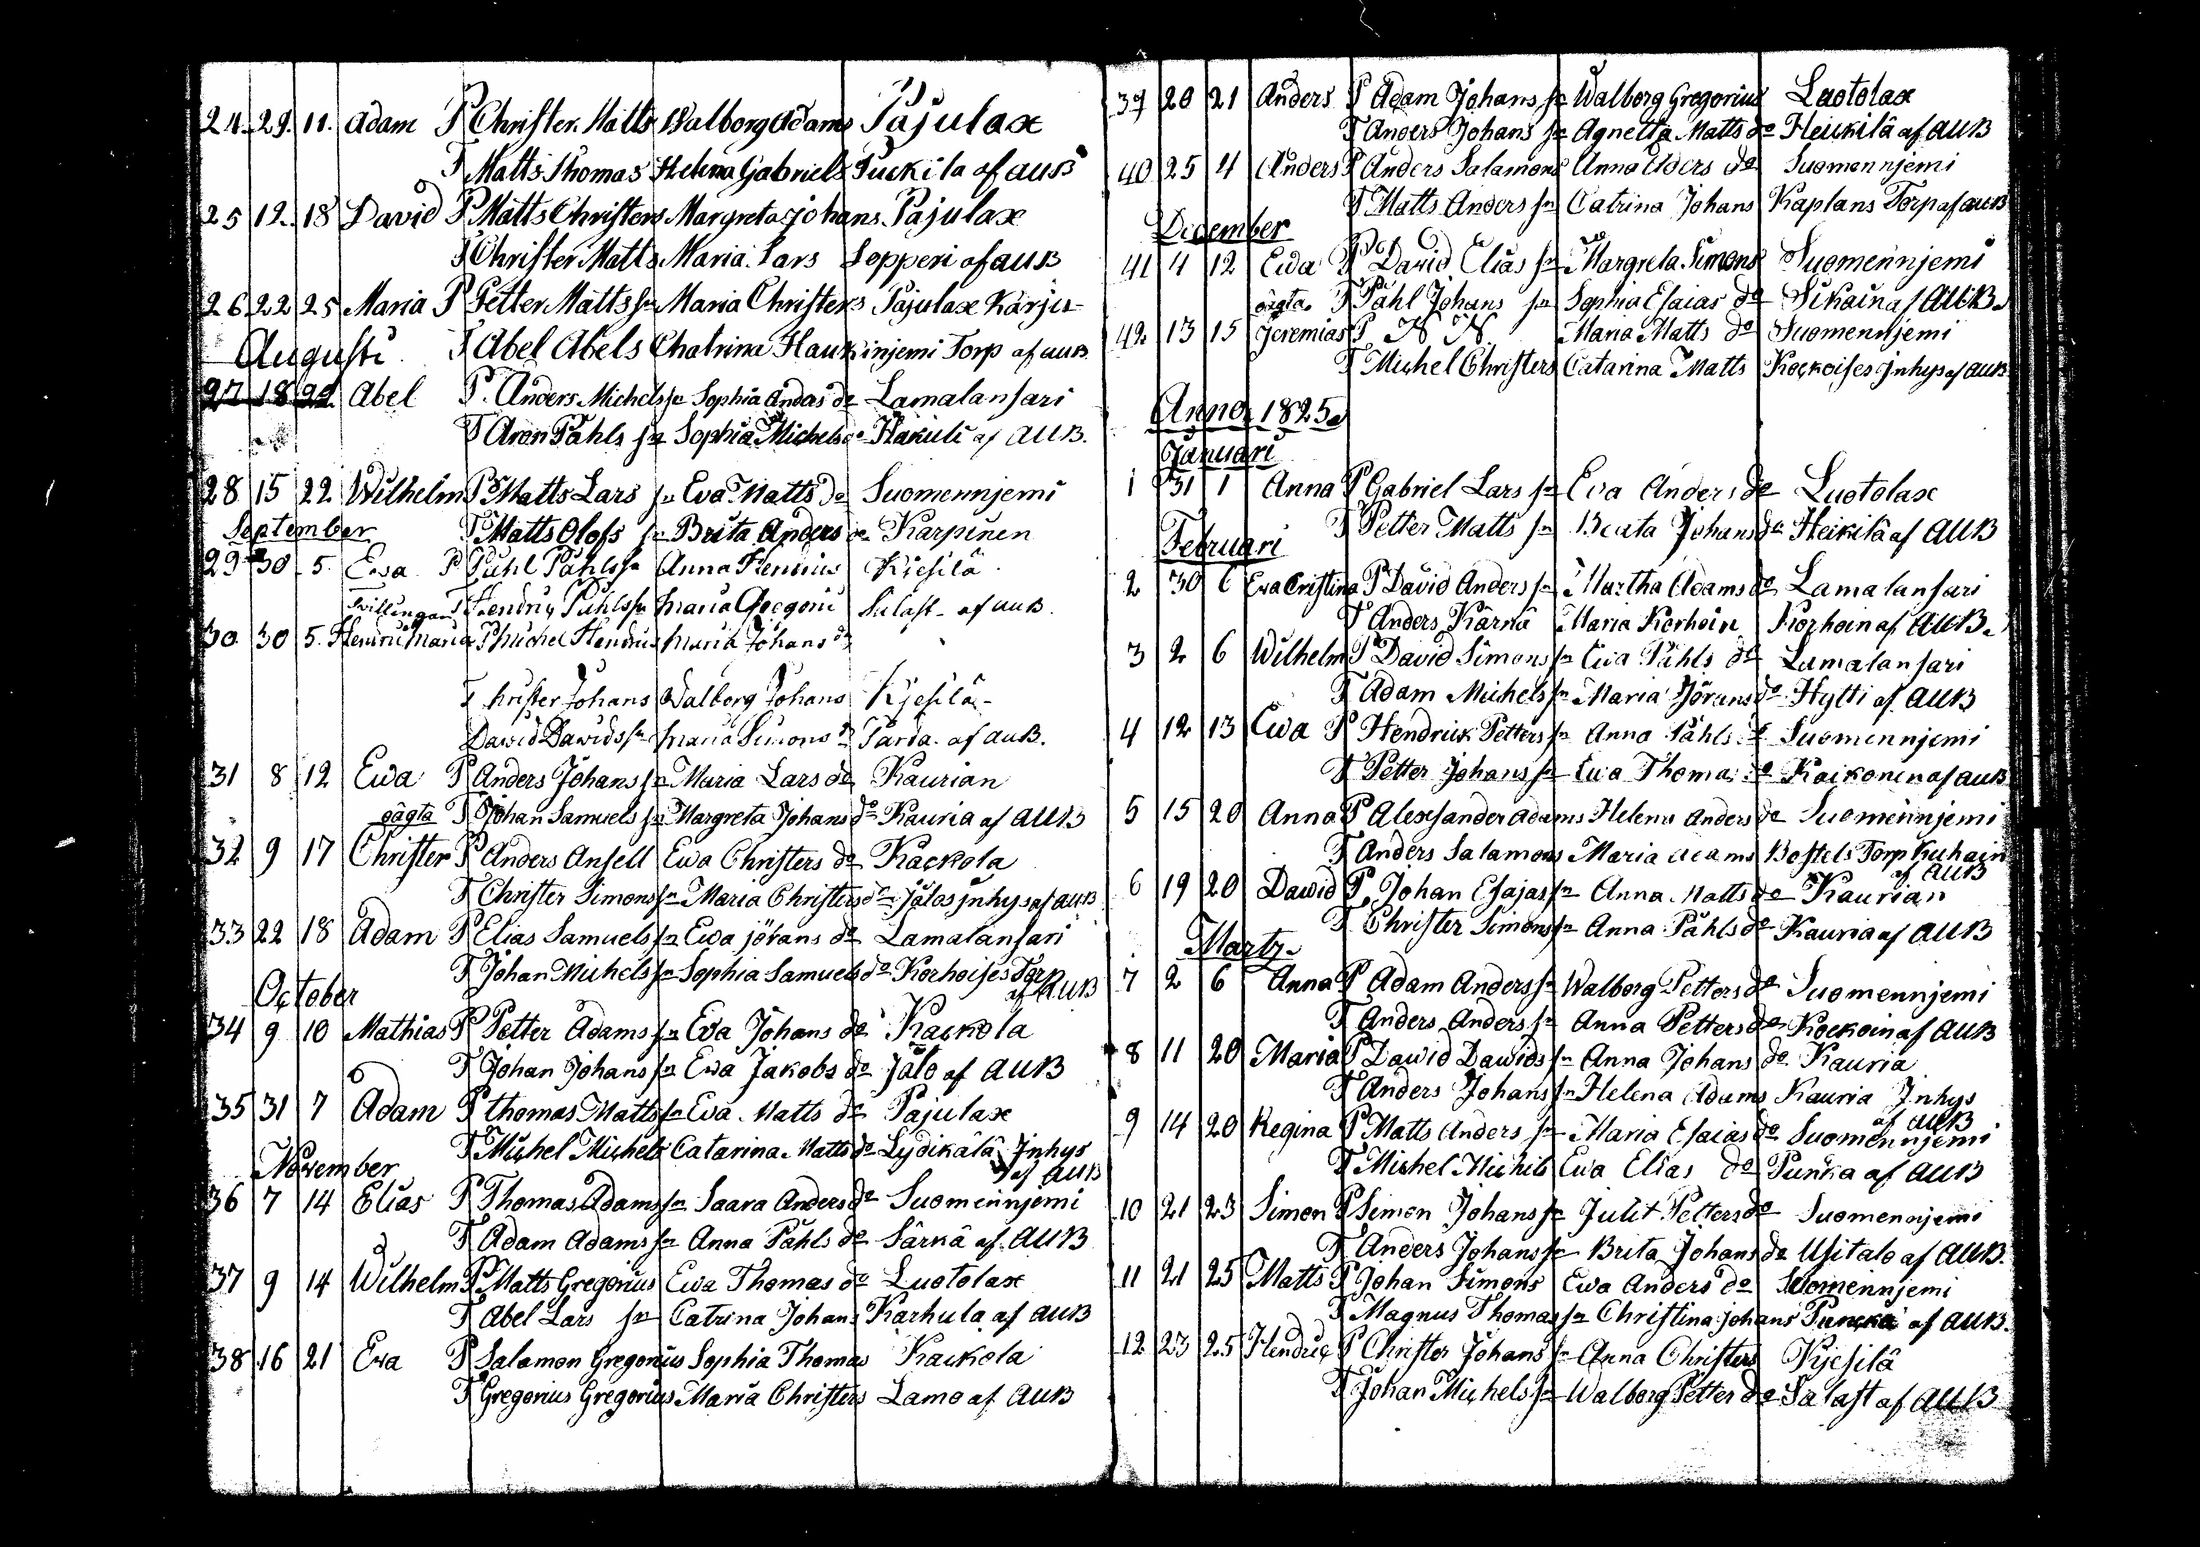 24. 29. 11. Adam P Christer Matts Walborg Adams Pajulax
T Matts Thomas Helena Gabriels Tuckila af AUB
25 12. 18 David P Matts Christers Margreta Johans Pajulax
T Christer Matts Maria Lars Lopperi af AUB
26 22 25 Maria P Petter Matts sn Maria Christers Pajulax Kärju-
Augusti T Abel Abels Chatrina Haukinjemi Torp af AUB
27 18 22 Abel P. Anders Michels sn Sophia Anders dr Lamalansari
T Aron Påhls sn Sophia Michels dr Hakuli af AUB.
28 15 22 Wilhelm P Matts Lars sn Eva Matts dr Suomennjemi
September T Matts Olofs sn Brita Anders dr Karpinen
29 30 5. Ewa P Påhl Påhls sn Anna Henrius Kjesilä
Tvillingar T Hendric Påhls sn Maria Gregorii Salast- af AUB.
30 30 5. Henric Maria P Michel Hendrics Maria Johans dr
T Christer Johans Walborg Johans Kjesilä-
David Davids sn Maria Simons dr Parda af AUB.
31 8 12 Ewa P Anders Johans sn Maria Lars dr Kaurian
oägta T Johan Samuels sn Margreta Johans dr Kauria af AUB
32 9 17 Christer P Anders Ansell Ewa Christers dr Kackola
T Christer Simons sn Maria Christers dr Jalas Jnhys af AUB
33 22 18 Adam P Elias Samuels sn Ewa Jörans dr Lamalansari
T Johan Michels sn Sophia Samuels dr Korhoises Torp
af AUB
October
34 9 10 Mathias P Petter Adams sn Eva Johans dr Kackola
T Johan Johans sn Ewa Jakobs dr Jalo af AUB
35 31 7 Adam P Thomas Matts sn Eva Matts dr Pajulax
T Michel Michels Catarina Matts dr Lydikälä Jnhys
November af AUB
36 7 14 Elias P Thomas Adams sn Saara Anders dr Suomennjemi
T Adam Adams sn Anna Påhls dr Särkä af AUB
37 9 14 Wilhelm P Matts Gregorius Ewa Thomas dr Luotolax
T Abel Lars sn Catrina Johans Karhula af AUB
38 16 21 Eva P Salamon Gregorius Sophia Thomas Kackola
T Gregorius Gregorius Maria Christers Lamo af AUB
39 20 21 Anders P Adam Johans sn Walborg Gregorius Luotolax
T Anders Johans sn Agnetta Matts dr Heickilä af AUB
40 25 4 Anders P Anders Salamons Anna Elders dr Suomennjemi
T Matts Anders sn Catrina Johans Kaplans Torp af AUB
December
41 4 12 Ewa P David Elias sn Margreta Simons Suomennjemi
oägta T Påhl Johans sn Sophia Esaias dr Sikain af AUB.
42 13 15 Jeremias P N N. Maria Matts dr Suomennjemi
T Michel Christers Catarina Matts Kockoises Jnhys af AUB
Anno 1825.
Januari
1 31 1 Anna P Gabriel Lars sn Eva Anders dr Luotolax
T Petter Matts sn Beata Johans dr Heikilä af AUB
Februari
2 30 6 Eva Cristina P David Anders sn Martha Adams dr Lamalansari
T Anders Kärnä Maria Korhoin Korhoin af AUB.
3 2 6 Wilhelm P David Simons sn Ewa Påhls dr Lamalansari
T Adam Michels sn Maria Jörans dr Hytti af AUB
4 12 13 Ewa P Hendrick Petters sn Anna Påhls dr Suomennjemi
T Petter Johans sn Ewa Thomas dr Kaikonen af AUB
5 15 20 Anna P Alexsander Adams Helena Anders dr Suomennjemi
T Anders Salamons Maria Adams Bostels Torp Kuhain
af AUB
6 19 20 Dawid P. Johan Esajas sn Anna Matts dr Kaurian
T Christer Simons sn Anna Påhls dr Kauria af AUB
Martz.
7 2 6 Anna P Adam Anders sn Walborg Petters dr Suomennjemi
T Anders Anders sn Anna Petters dr Kockoin af AUB
8 11 20 Maria P Dawid Dawids sn Anna Johans dr Kauria
T Anders Johans sn Helena Adams Kauria Jnhys
af AUB
9 14 20 Regina P Matts Anders sn Maria Esaias dr Suomennjemi
T Michel Michels Ewa Elias dr Punka af AUB
10 21 23 Simon P Simon Johans sn Julit Petters dr Suomennjemi
T Anders Johans sn Brita Johans dr Usitalo af AUB.
11 21 25 Matts P Johan Simons Ewa Anders dr Suomennjemi
T Magnus Thomas sn Christina Johans Puncka af AUB.
12 23 25 Hendric P Christer Johans sn Anna Christers Kjesilä
T Johan Michels sn Walborg Petter dr Salast af AUB